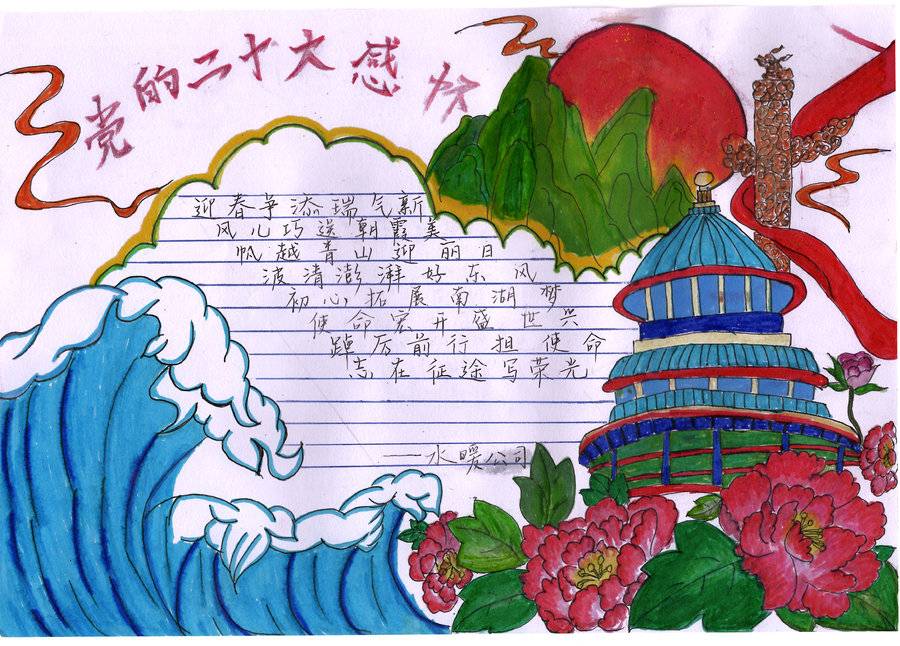 党的二十大感
迎春争添瑞气新
风儿巧送朝霞美
帆越青山迎丽日
波清澎湃好东风
初心拓展南湖梦
使命宏开盛世兴
踔厉前行担使命
志在征途写荣光
——水暖公司